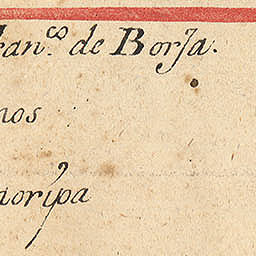 ran.co de Borja.
nos
aoripa